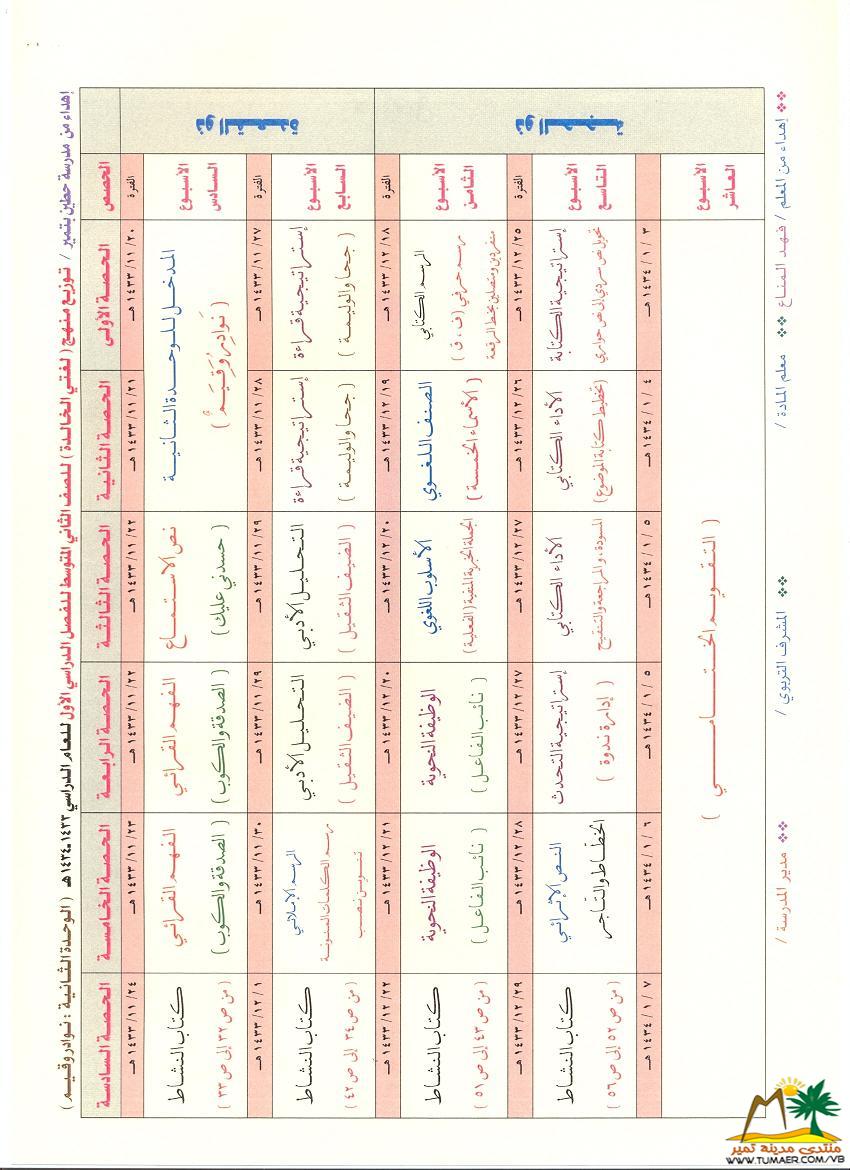 إهداء من مدرسة حطين بتمير / توزيع منهج ( لغتي الخالدة ) للصف الثاني المتوسط للفصل الدراسي الأول للعام الدراسي ١٤٣٣-١٤٣٤ هـ ( الوحدة الثانية : نوادر وقيم )
الحصص
الحصة الأولى
الحصة الثانية
الحصة الثالثة
الحصة الرابعة
الحصة الخامسة
الحصة السادسة
ذو القعدة
الفترة
٢٠ / ١١ / ١٤٣٣ هـ
٢١ / ١١ / ١٤٣٣ هـ
٢٢ / ١١ / ١٤٣٣ هـ
٢٢ / ١١ / ١٤٣٣ هـ
٢٣ / ١١ / ١٤٣٣ هـ
٢٤ / ١١ / ١٤٣٣ هـ
الأسبوع السادس
المدخل للوحدة الثانية
( نوادر وقيم )
نص الاستماع
( حسدني عليك )
الفهم القرائي
( الصدقة والكوب )
الفهم القرائي
( الصدقة والكوب )
كتاب النشاط
( من ص ٣٢ إلى ص ٣٣ )
الفترة
٢٧ / ١١ / ١٤٣٣ هـ
٢٨ / ١١ / ١٤٣٣ هـ
٢٩ / ١١ / ١٤٣٣ هـ
٢٩ / ١١ / ١٤٣٣ هـ
٣٠ / ١١ / ١٤٣٣ هـ
١ / ١٢ / ١٤٣٣ هـ
الأسبوع السابع
إستراتيجية قراءة
( جحا والوليمة )
إستراتيجية قراءة
( جحا والوليمة )
التحليل الأدبي
( الضيف الثقيل )
التحليل الأدبي
( الضيف الثقيل )
الرسم الإملائي
رسم الكلمات المنونة
تنوين نصب
كتاب النشاط
( من ص ٣٤ إلى ص ٤٢ )
ذو الحجة
الفترة
١٨ / ١٢ / ١٤٣٣ هـ
١٩ / ١٢ / ١٤٣٣ هـ
٢٠ / ١٢ / ١٤٣٣ هـ
٢٠ / ١٢ / ١٤٣٣ هـ
٢١ / ١٢ / ١٤٣٣ هـ
٢٢ / ١٢ / ١٤٣٣ هـ
الأسبوع الثامن
الرسم الكتابي
رسم حرفي ( ف ، ق )
منفردين ومتصلين بخط الرقعة
الصنف اللغوي
( الأسماء الخمسة )
الأسلوب اللغوي
الجملة الخبرية المنفية ( الفعلية )
الوظيفة النحوية
( نائب الفاعل )
الوظيفة النحوية
( نائب الفاعل )
كتاب النشاط
( من ص ٤٣ إلى ص ٥١ )
الفترة
٢٥ / ١٢ / ١٤٣٣ هـ
٢٦ / ١٢ / ١٤٣٣ هـ
٢٧ / ١٢ / ١٤٣٣ هـ
٢٧ / ١٢ / ١٤٣٣ هـ
٢٨ / ١٢ / ١٤٣٣ هـ
٢٩ / ١٢ / ١٤٣٣ هـ
الأسبوع التاسع
إستراتيجية الكتابة
تحويل نص سردي إلى نص حواري
الأداء الكتابي
( تخطيط كتابة الموضوع )
الأداء الكتابي
المسودة ، والمراجعة والتنقيح
إستراتيجية التحدث
( إدارة ندوة )
النص الإثرائي
الخطاط والتاجر
كتاب النشاط
( من ص ٥٢ إلى ص ٥٦ )
٣ / ١ / ١٤٣٤ هـ
٤ / ١ / ١٤٣٤ هـ
٥ / ١ / ١٤٣٤ هـ
٥ / ١ / ١٤٣٤ هـ
٦ / ١ / ١٤٣٤ هـ
٧ / ١ / ١٤٣٤ هـ
الأسبوع العاشر
( التقويم الختامي )
إهداء من المعلم / فهد المناع معلم المادة / المشرف التربوي / مدير المدرسة /
منتدى مدينة تمير
WWW.TUMAER.COM/VB